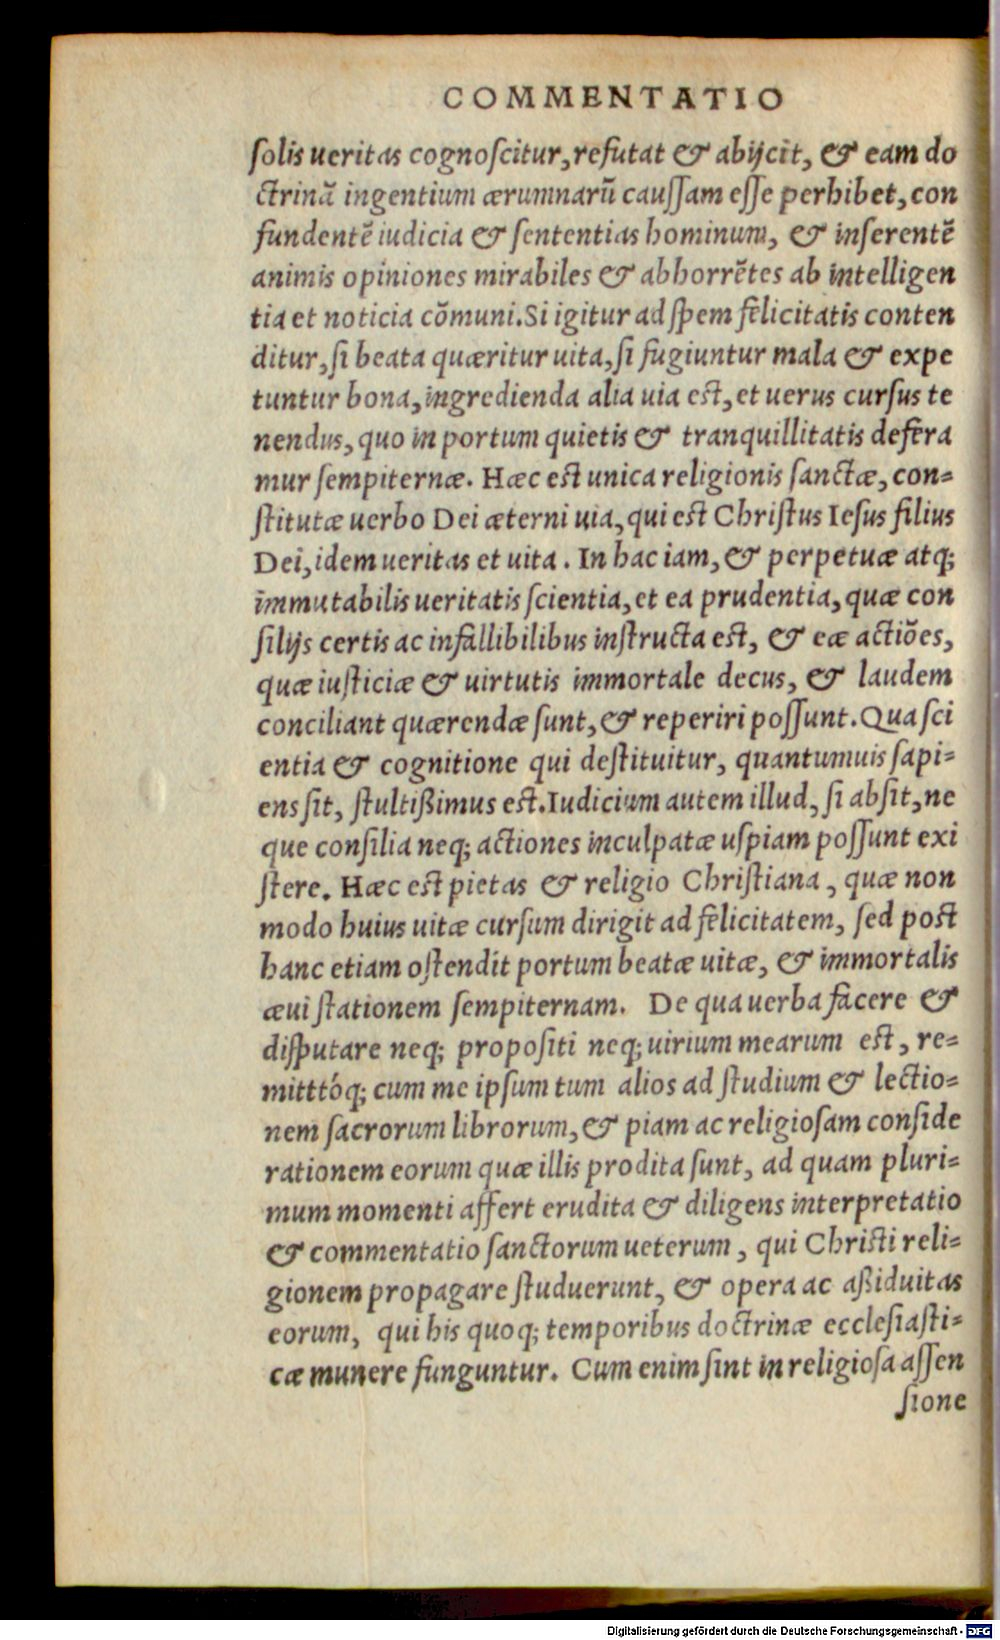 COMMENTATIO
solis ueritas cognoscitur, refutat & abijcit, & eam do
ctrinā ingentium ærumnarū caussam esse perhibet, con
fundentē iudicia & sententias hominum, & inserentē
animis opiniones mirabiles & abhorrētes ab intelligen
tia et noticia cōmuni. Si igitur ad spem felicitatis conten
ditur, si beata quæritur uita, si fugiuntur mala & expe
tuntur bona, ingredienda alia uia est, et uerus cursus te
nendus, quo in portum quietis & tranquillitatis defera
mur sempiternæ. Hæc est unica religionis sanctæ, con=
stitutæ uerbo Dei æterni uia, qui est Christus Iesus filius
Dei, idem ueritas et uita. In hac iam, & perpetuæ atq;
immutabilis ueritatis scientia, et ea prudentia, quæ con
silijs certis ac infallibilibus instructa est, & eæ actiōes,
quæ iusticiæ & uirtutis immortale decus, & laudem
conciliant quærendæ sunt, & reperiri possunt. Qua sci
entia & cognitione qui destituitur, quantumuis sapi=
ens sit, stultißimus est. Iudicium autem illud, si absit, ne
que consilia neq; actiones inculpatæ uspiam possunt exi
stere. Hæc est pietas & religio Christiana, quæ non
modo huius uitæ cursum dirigit ad felicitatem, sed post
hanc etiam ostendit portum beatæ uitæ, & immortalis
æui stationem sempiternam. De qua uerba facere &
disputare neq; propositi neq; uirium mearum est, re=
mitttóq; cum me ipsum tum alios ad studium & lectio=
nem sacrorum librorum, & piam ac religiosam conside
rationem eorum quæ illis prodita sunt, ad quam pluri=
mum momenti affert erudita & diligens interpretatio
& commentatio sanctorum ueterum, qui Christi reli=
gionem propagare studuerunt, & opera ac aßiduitas
eorum, qui his quoq; temporibus doctrinæ ecclesiasti=
cæ munere funguntur. Cum enim sint in religiosa assen
sione
Digitalisierung gefördert durch die Deutsche Forschungsgemeinschaft - DFG